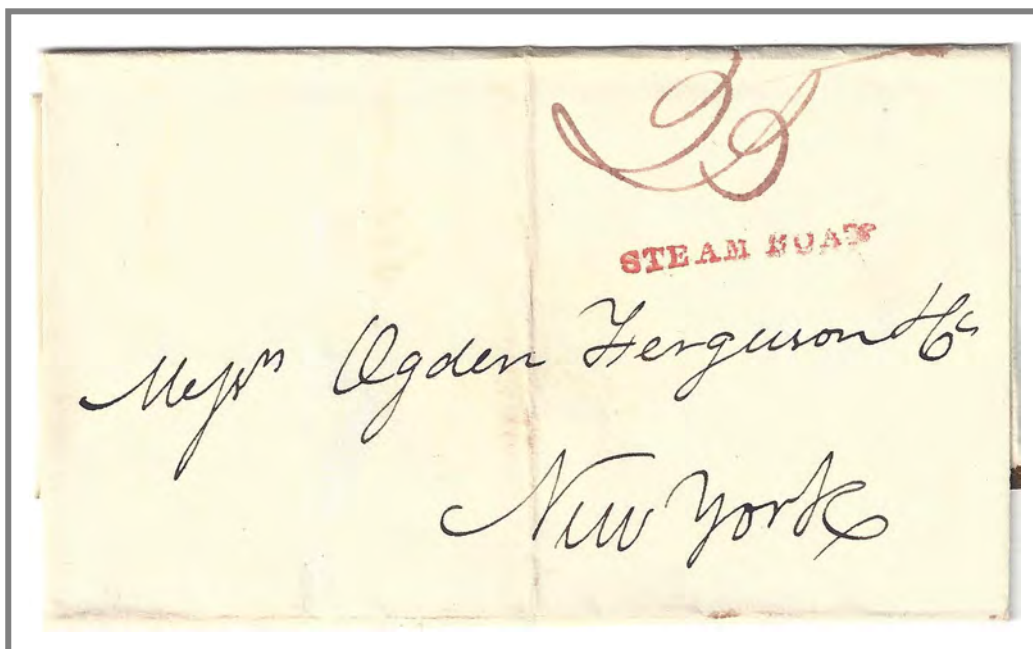 25
STEAM BOAT
Messrs Ogden Ferguson & Co
New York